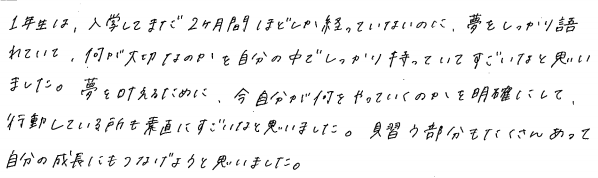 1年生は、入学してまだ2ヶ月間ほどしか経っていないのに、夢をしっかり語
れていて、何が大切なのかを自分の中でしっかり持っていてすごいなと思い
ました。夢を叶えるために、今自分が何をやっていくのかを明確にして、
行動している所も素直にすごいなと思いました。見習う部分もたくさんあって
自分の成長にもつなげようと思いました。